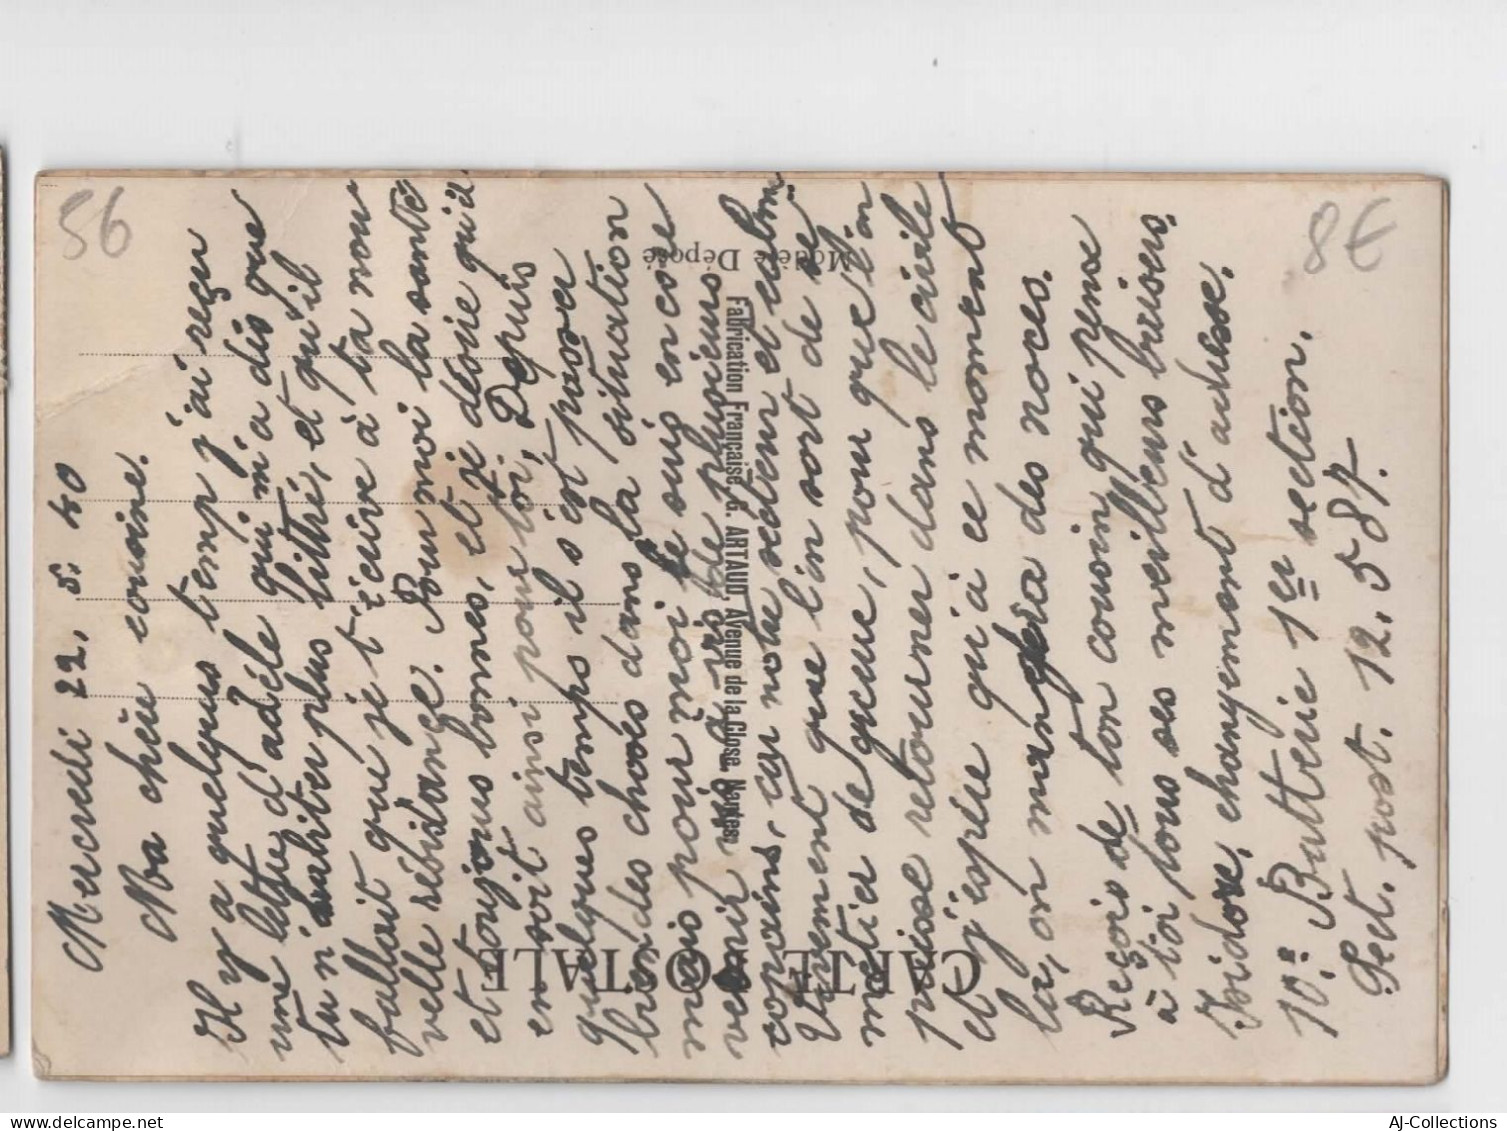 Mercredi 22. 5. 40
Ma chère cousine.
Il y a quelques temp j'ai reçu
une lettre d'adèle qui m'a dis que
tu n'habiter plus littré, et qu'il
fallait que je t'écrive à ta nou
velle résidance. Pour moi la santé
et toujours bonnes, et je désire qu'il
en soit ainsi pour toi, Depuis
quelques temps il s'est passer
bien des choses dans la situation
mais pour moi je suis encore
venir de plusieurs
copains, car notre secteur et calme
Vivement que l'on sort de se
metier de guerre, pour que l'on
puisse retourner dans le civile
et j'espère qu'à ce moment
la, on mangera des noces.
Reçois de ton cousin qui pense
à toi tous ses meilleurs baisers,
Isidore, changement d'adresse.
10e Batterie 1er section.
Sect. post. 12.587.
CARTE POSTALE
Modèle Déposé
Fabrication Française, G. ARTAUD, Avenue de la Close, Nantes
56
8€
AJ-Collections